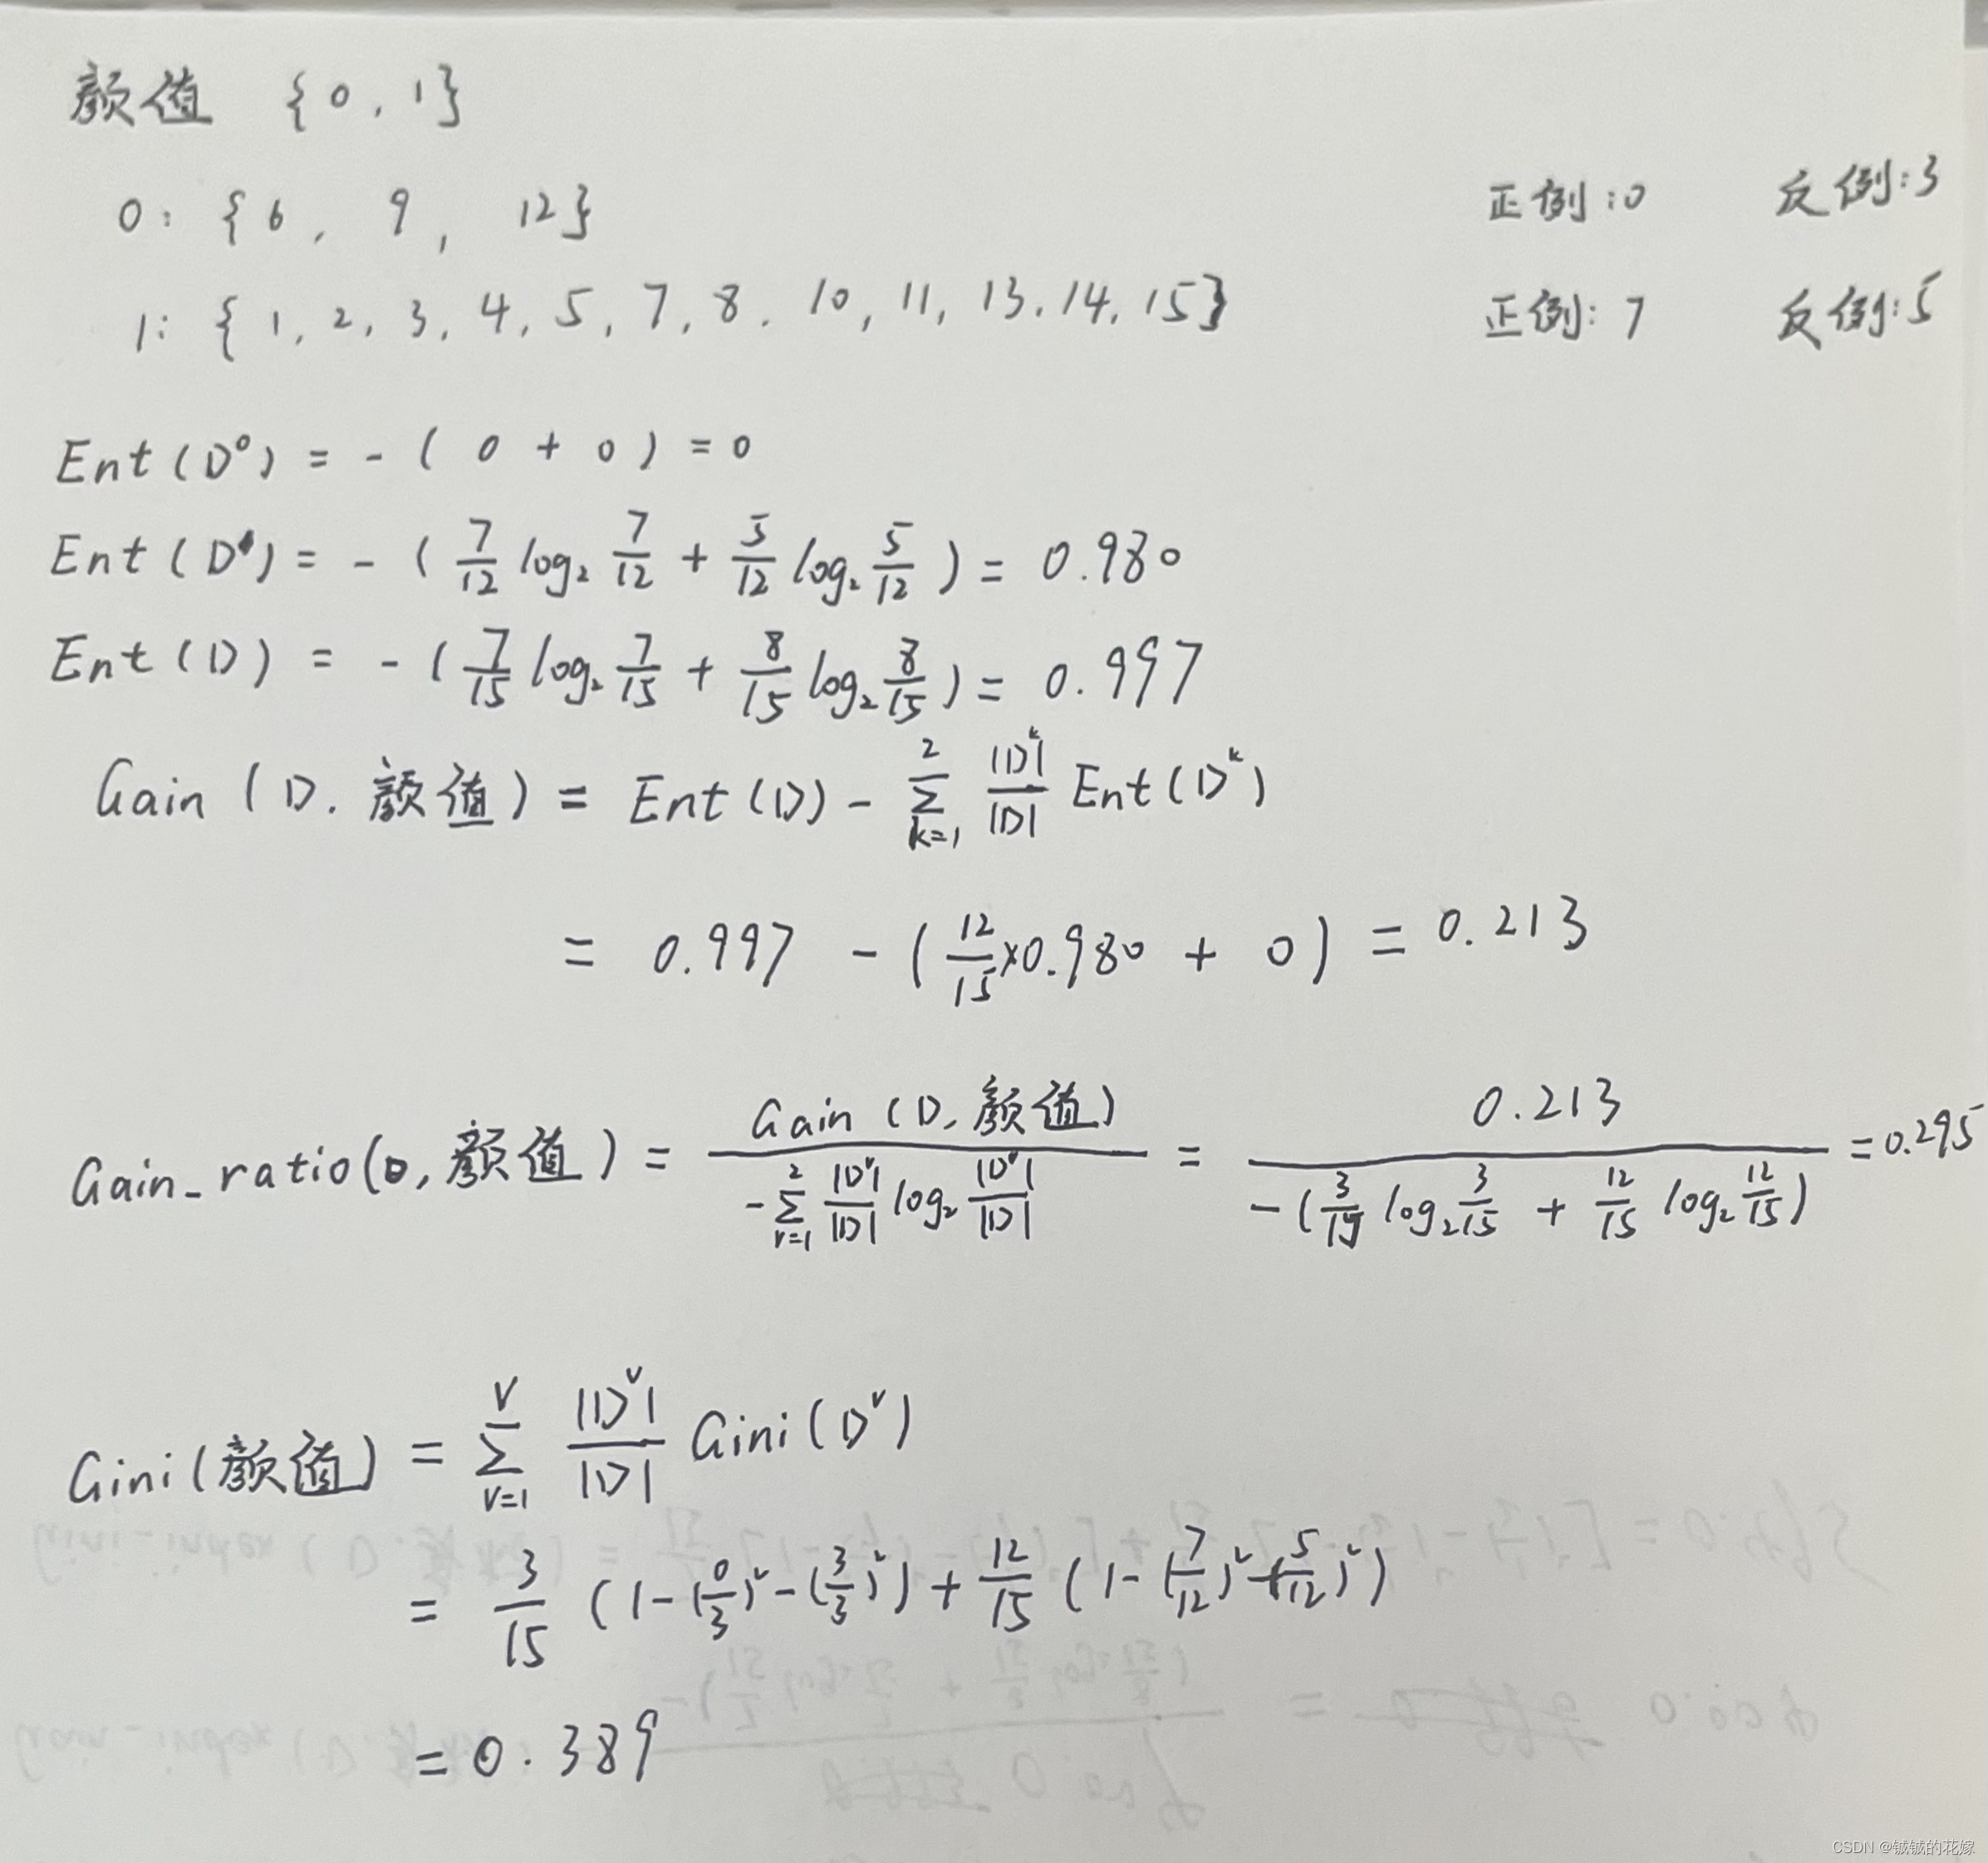 颜值 {0, 1}
0: {6, 9, 12} 正例:0 反例:3
1: {1, 2, 3, 4, 5, 7, 8, 10, 11, 13, 14, 15} 正例: 7 反例:5
Ent(D⁰) = -( 0 + 0 ) = 0
Ent(D¹) = -( 7/12 log₂ 7/12 + 5/12 log₂ 5/12 ) = 0.980
Ent(D) = -( 7/15 log₂ 7/15 + 8/15 log₂ 8/15 ) = 0.997
Gain (D, 颜值) = Ent(D) - Σ_{k=1}^{2} |D^k|/|D| Ent(D^k)
= 0.997 - ( 12/15 ×0.980 + 0 ) = 0.213
Gain_ratio(D, 颜值) = Gain (D, 颜值) / -Σ_{v=1}^{2} |D^v|/|D| log₂ |D^v|/|D| = 0.213 / -( 3/15 log₂ 3/15 + 12/15 log₂ 12/15 ) = 0.295
Gini(颜值) = Σ_{v=1}^{V} |D^v|/|D| Gini(D^v)
= 3/15 (1-(0/3)²-(3/3)²) + 12/15 (1-(7/12)²-(5/12)²)
= 0.389
CSDN @铖铖的花嫁